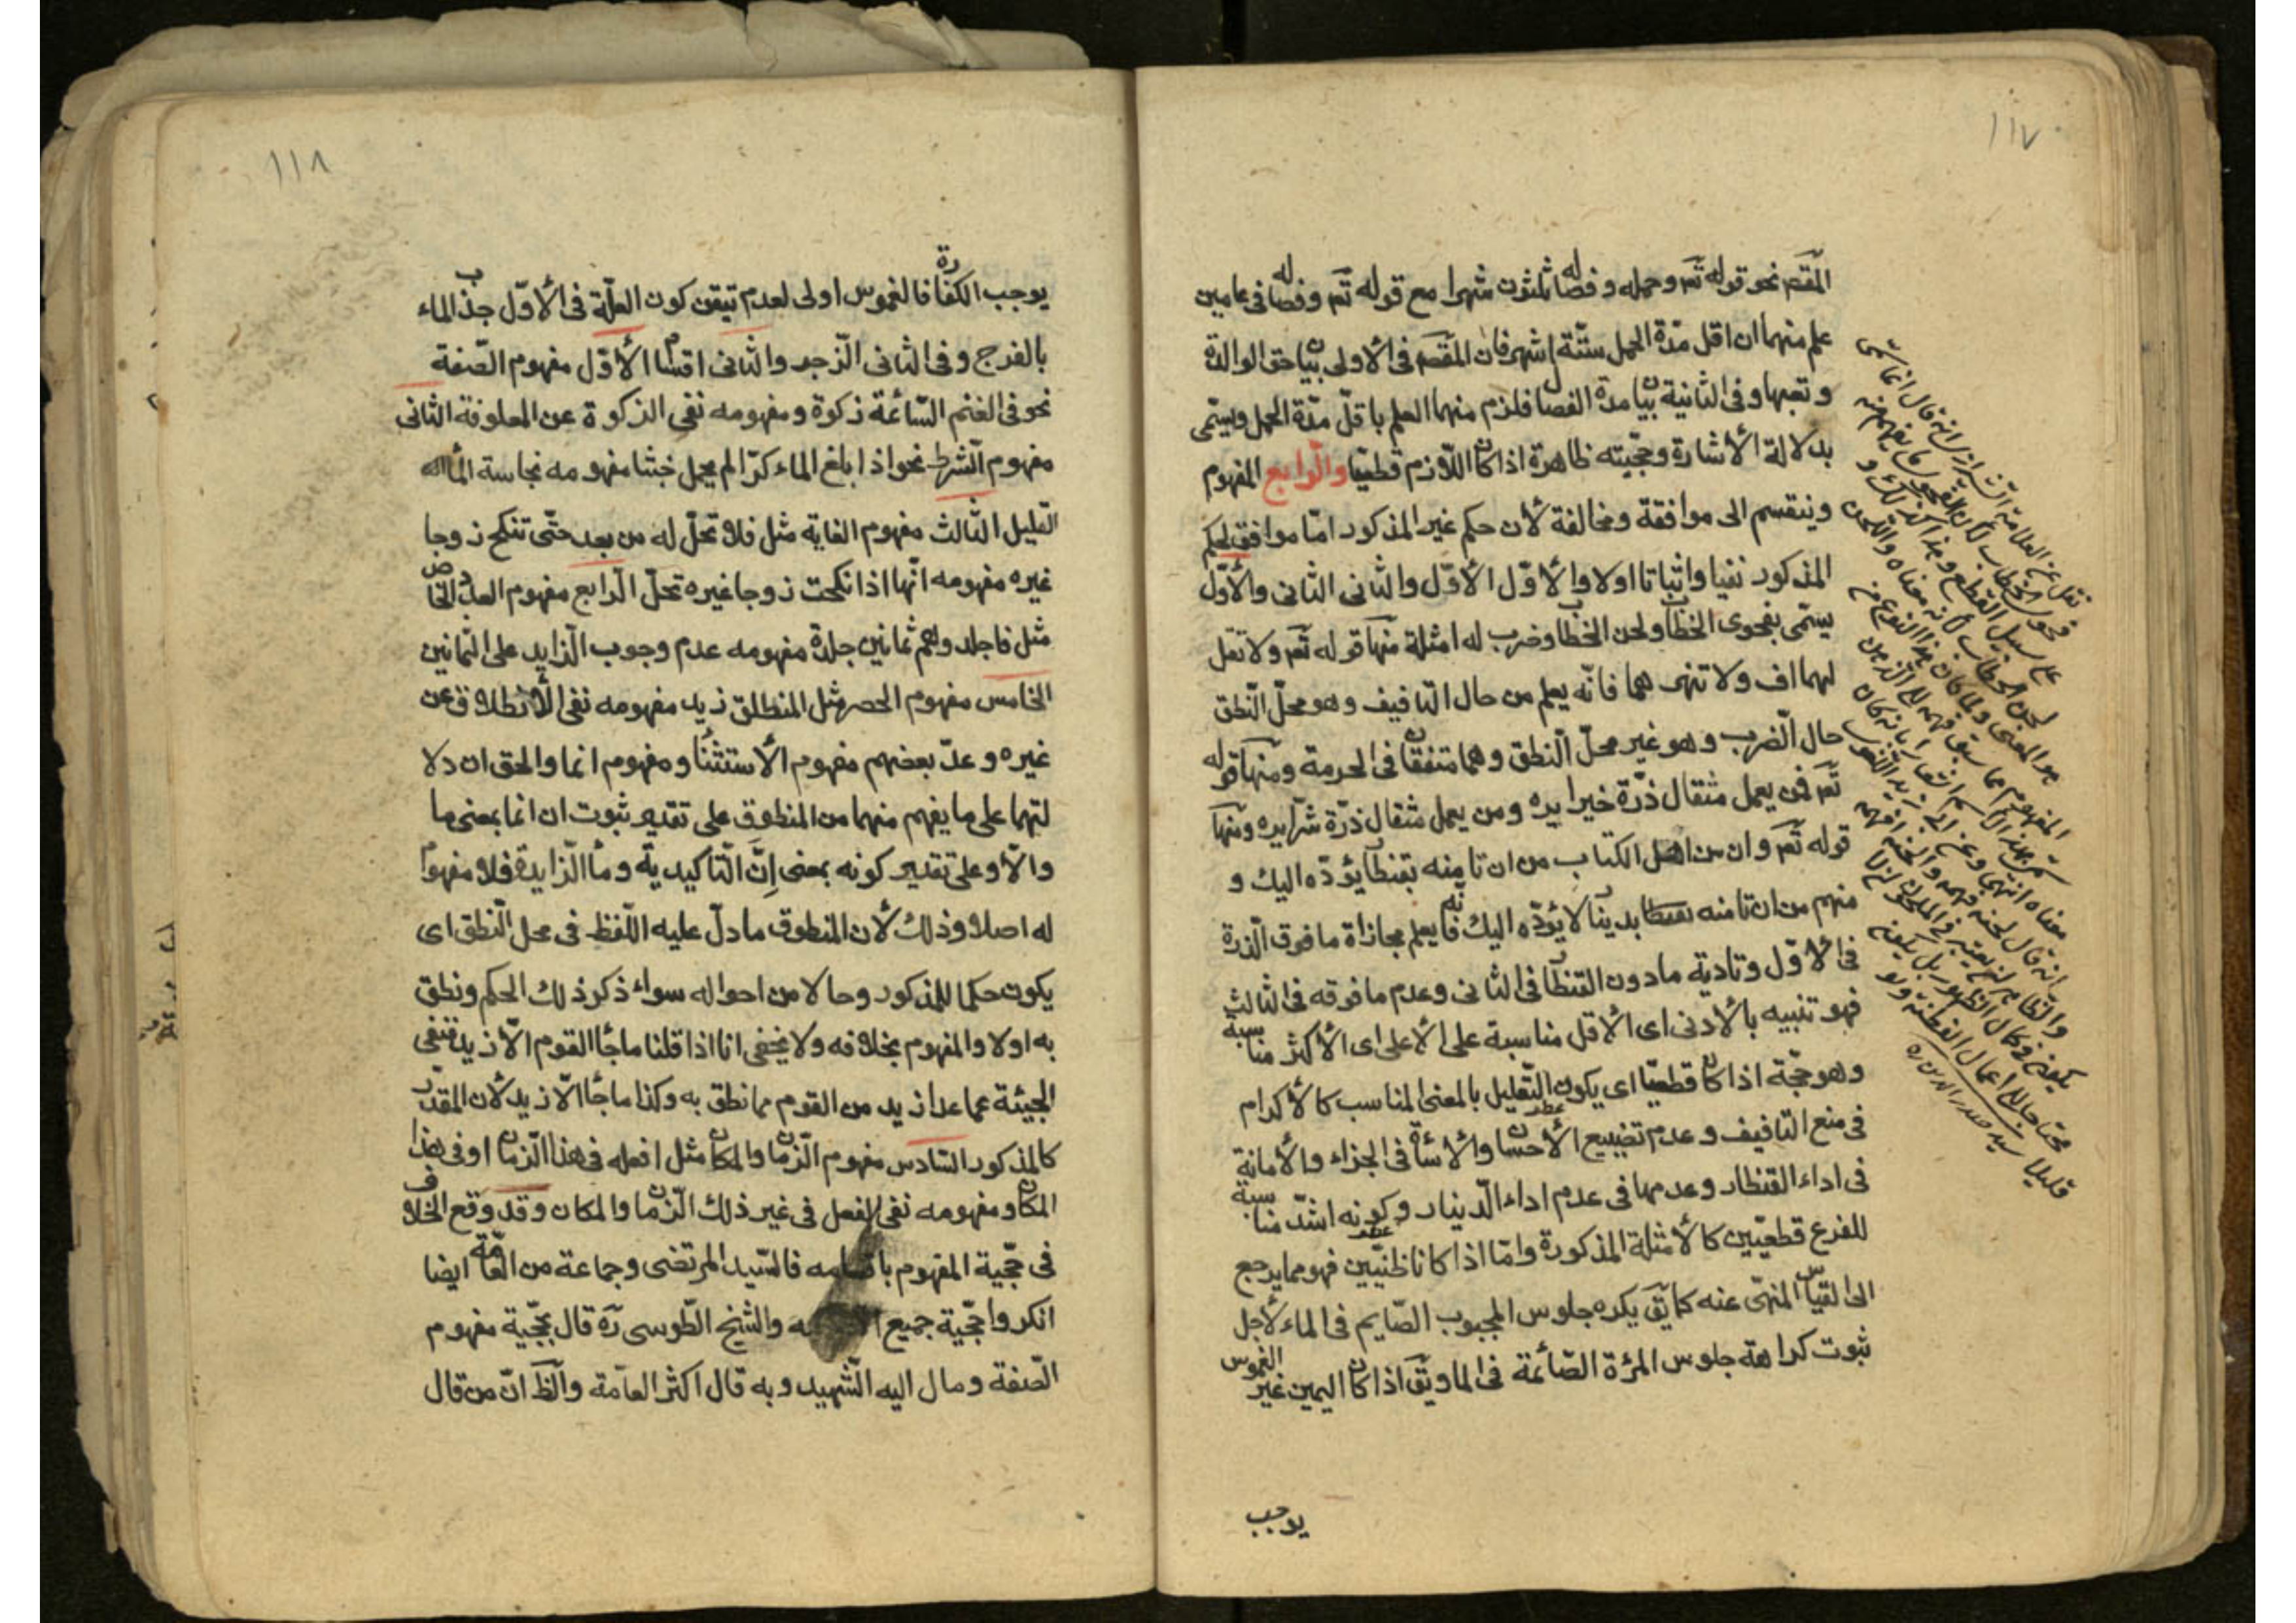 ١١٧
المقصم نحو قوله تم وحمله وفصاله ثلثون شهرا مع قوله تم وفصاله فى عامين
علم منهما ان اقل مدة الحمل ستة اشهر فان المقصم فى الاولى بيان حق الوالدة
وتعبها وفى الثانية بيان مدة الفصال فلزم منهما العلم باقل مدة الحمل ويسمى
بدلالة الأشارة وحجيته ظاهرة اذا كان اللازم قطعيا والرابع المفهوم
وينقسم الى موافقة ومخالفة لأن حكم غير المذكور اما موافق لحكم
المذكور نفيا واثباتا اولا والاول الأول والثانى الثانى والأول
يسمى بفحوى الخطاب ولحن الخطاب وضرب له امثلة منها قوله تم ولا تقل
لهما اف ولا تنهرهما فانه يعلم من حال التافيف وهو محل النطق
حال الضرب وهو غير محل النطق وهما متفقان فى الحرمة ومنها قوله
تم فمن يعمل مثقال ذرة خيرا يره ومن يعمل مثقال ذرة شرا يره ومنها
قوله تم وان من اهل الكتاب من ان تامنه بقنطار يؤده اليك و
منهم من ان تامنه بدينار لا يؤده اليك فانه يعلم مجازاة ما فوق الذرة
فى الأول وتادية ما دون القنطار فى الثانى وعدم ما فوقه فى الثالث
فهو تنبيه بالأدنى اى الأقل مناسبة على الأعلى اى الأكثر مناسبة
وهو حجة اذا كان قطعيا اى يكون التعليل بالمعنى المناسب كالأكرام
فى منع التافيف وعدم تضييع الأحسان والأسأة فى الجزاء والأمانة
فى اداء القنطار وعدمها فى عدم اداء الدينار وكونه اشد مناسبة
للفرع قطعيين كالأمثلة المذكورة واما اذا كانا ظنيين فهو مما يرجع
الى القياس المنهى عنه كما يق يكره جلوس المجبوب الصايم فى الماء لأجل
ثبوت كراهة جلوس المرئة الصائمة فى الما ويق اذا كان اليمين غير الغموس
يوجب
نقل عن العلامة الشيرازى انه قال انما سمى
فحوى الخطاب لأن الفحوى ما يفهم منه
على سبيل القطع وهذا كذلك و
لحن الخطاب لأنه معناه واللحن
هو المعنى ولما كان هذا النوع من
المفهوم مما سبق فهمه الى الذهن
سمى بهذا الاسم اشعارا بانه كان
معناه انتهى وعن ابى زيد
انه قال لحنه فهمه والحنه افهمه
قليلا سيد صدر الدين ره
١١٨
يوجب الكفارة فالغموس اولى لعدم تيقن كون العلة فى الأول جذب الماء
بالفرج وفى الثانى الزجر والثانى اقسام الأول مفهوم الصفة
نحو فى الغنم السائمة زكوة ومفهومه نفى الزكوة عن المعلوفة الثانى
مفهوم الشرط نحو اذا بلغ الماء كرا لم يحمل خبثا مفهومه نجاسة الماء
القليل الثالث مفهوم الغاية مثل فلا تحل له من بعد حتى تنكح زوجا
غيره مفهومه انها اذا نكحت زوجا غيره تحل الرابع مفهوم العدد الخاص
مثل فاجلدوهم ثمانين جلدة مفهومه عدم وجوب الزايد على الثمانين
الخامس مفهوم الحصر مثل المنطلق زيد مفهومه نفى الأنطلاق عن
غيره وعد بعضهم مفهوم الأستثناء ومفهوم انما والحق ان دلا
لتهما على ما يفهم منهما من المنطوق على تقدير ثبوت ان انما بمعنى ما
والا وعلى تقدير كونه بمعنى إنَّ التاكيدية وما الزايدة فلا مفهوم
له اصلا وذلك لأن المنطوق ما دل عليه اللفظ فى محل النطق اى
يكون حكما للمذكور وحالا من احواله سواء ذكر ذلك الحكم ونطق
به اولا والمفهوم بخلافه ولا يخفى انا اذا قلنا ما جأ القوم الا زيد فنفى
الجيئة عما عدا زيد من القوم مما نطق به وكذا ما جأ الا زيد لأن المقدر
كالمذكور السادس مفهوم الزمان والمكان مثل افعله فى هذا الزمان او فى هذا
المكان ومفهومه نفى الفعل فى غير ذلك الزمان والمكان وقد وقع الخلاف
فى حجية المفهوم باقسامه فالسيد المرتضى وجماعة من العامة ايضا
انكروا حجية جميع والشيخ الطوسى ره قال بحجية مفهوم
الصفة ومال اليه الشهيد وبه قال اكثر العامة والظ ان من قال